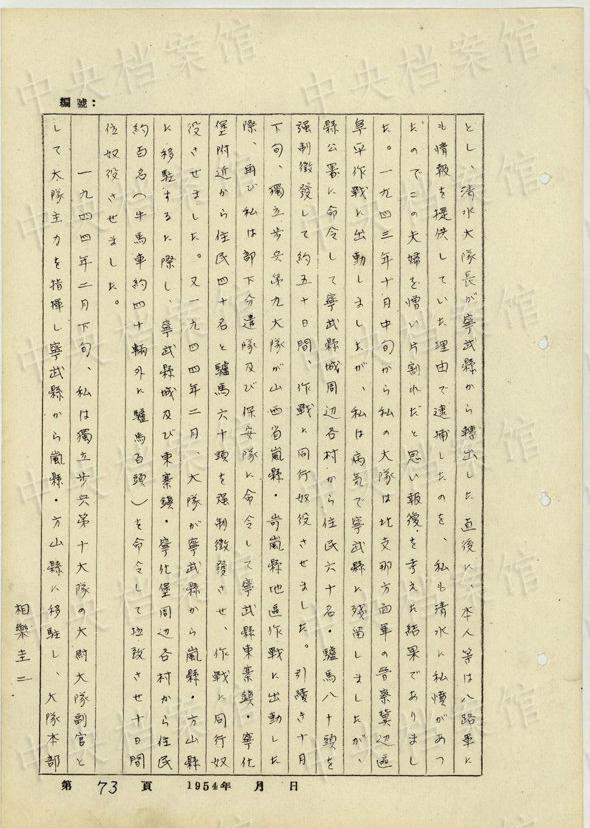 編號：
とし、清水大隊長が寧武縣から轉出した直後に、本人等は八路軍に
も情報を提供していた理由で逮捕したのを、私も清水に私憤があつ
たのでこの夫婦を憎い片割れだと思い報復を考えた結果でありまし
た。一九四三年十月中旬から私の大隊は北支那方面軍の晉察冀辺區
阜平作戰に出動しましたが、私は病気で寧武縣に残留しましたが、
縣公署に命令して寧武縣城周辺各村から住民六十名・驢馬八十頭を
強制徴發して約五十日間、作戰に同行奴役させました。引續き十月
下旬、獨立歩兵第九大隊が山西省嵐縣・岢嵐縣地區作戰に出動した
際、再び私は部下分遣隊及び保安隊に命令して寧武縣東寨鎮・寧化
堡附近から住民四十名と驢馬六十頭を强制徴發させ、作戰に同行奴
役させました。又一九四四年二月、大隊が寧武縣から嵐縣・方山縣
に移駐するに際し、寧武縣城及び東寨鎮・寧化堡周辺各村から住民
約百名（牛馬車約四十輛外に驢馬百頭）を命令して徴發させ十日間
位奴役させました。
一九四四年二月下旬、私は獨立歩兵第十大隊の大尉大隊副官と
して大隊主力を指揮し寧武縣から嵐縣・方山縣に移駐し、大隊本部
相樂圭二
第 73 頁 1954年 月 日
中央档案馆